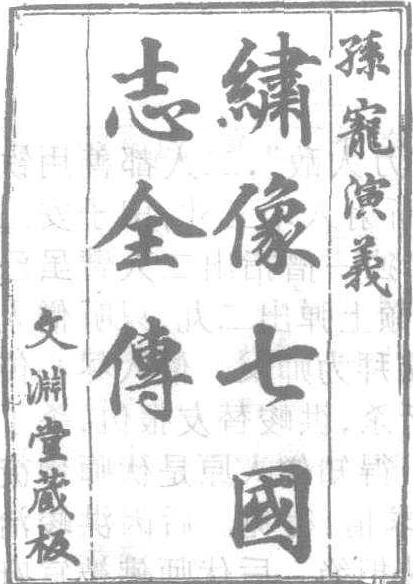 孫寵演義
繡像七國
志全傳
文淵堂藏板